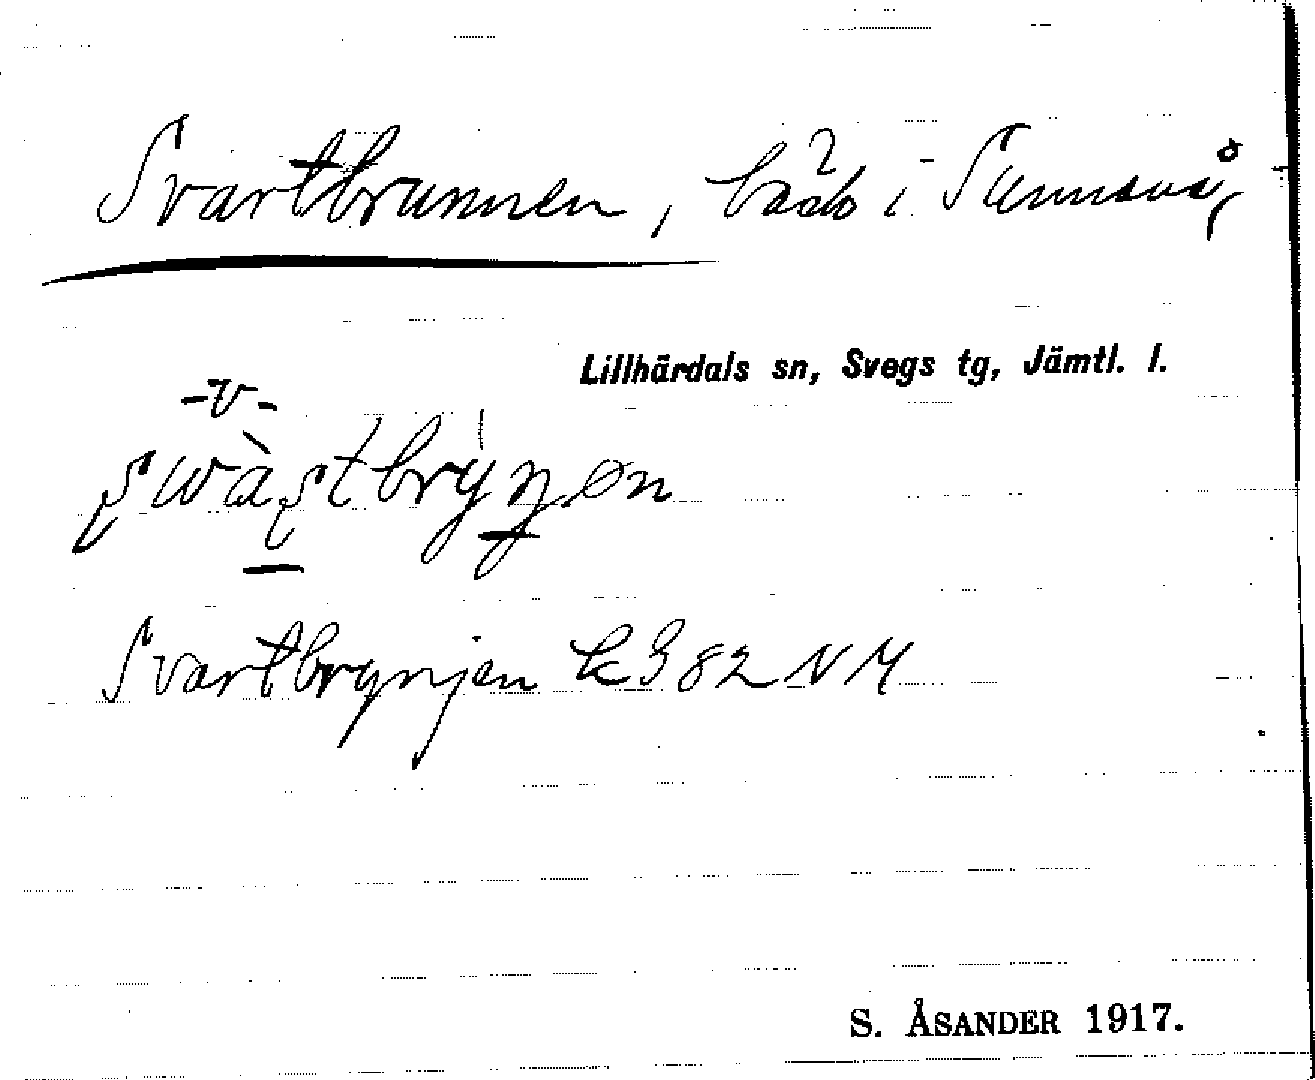 Svartbrunnen, bäck i Sunnanå,
Lillhärdals sn, Svegs tg, Jämtl. l.
-v-
Svartbrynjen k382NV
S. ÅSANDER 1917.